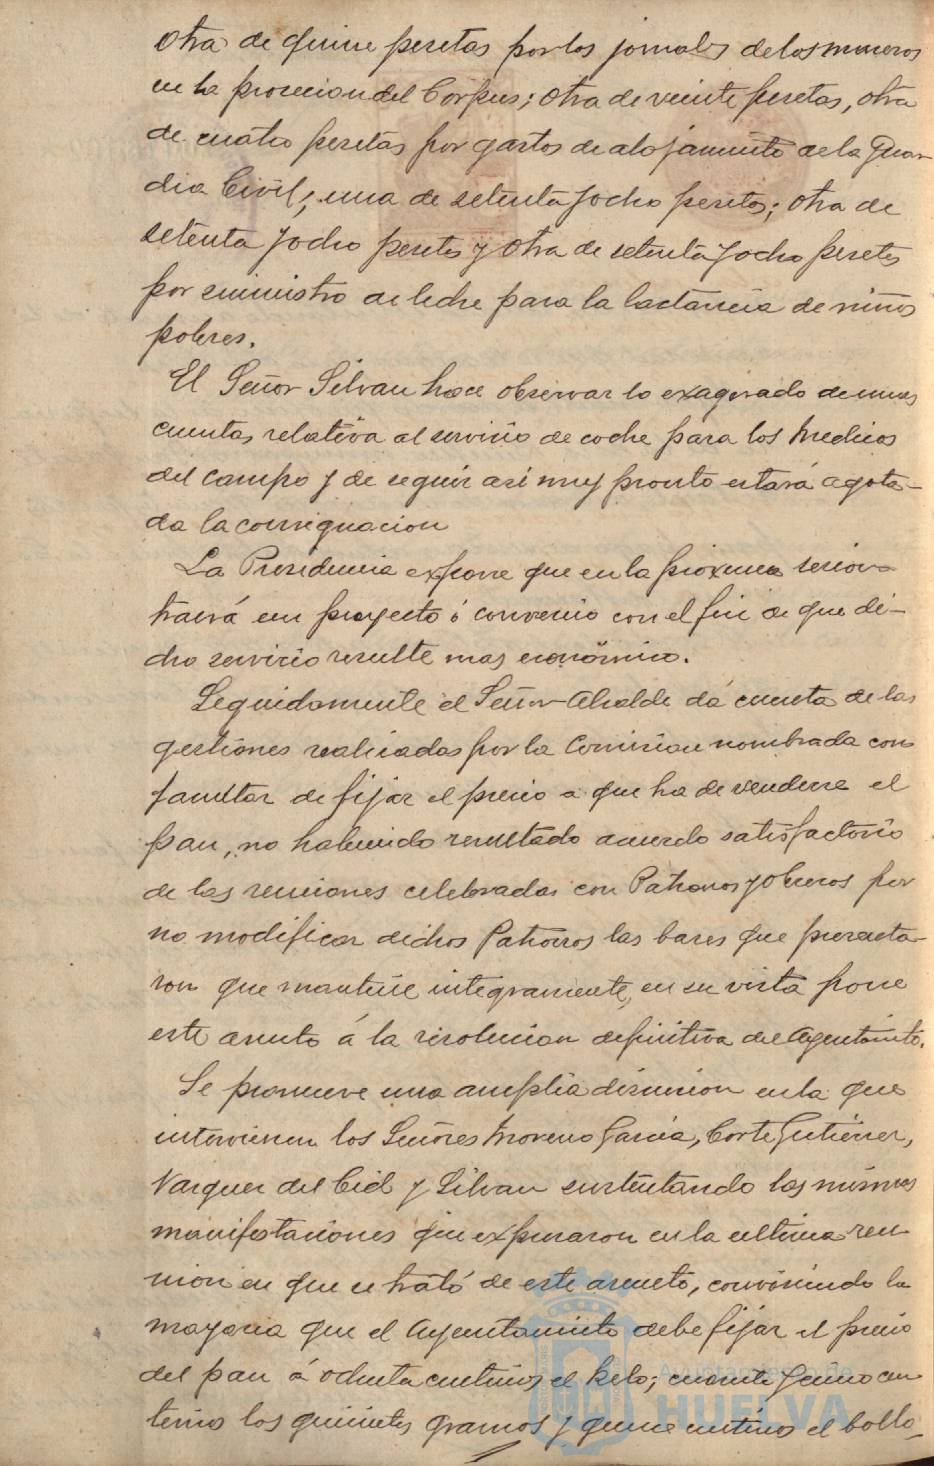 Otra de quince pesetas por los jornales de los maceros
en la procesion del Corpus; otra de veinte pesetas, otra
de cuatro pesetas por gastos de alojamiento de la Guar-
dia Civil; una de setenta y ocho pesetas; otra de
setenta y ocho pesetas y otra de setenta y ocho pesetas
por suministro de leche para la lactancia de niños
pobres.
El Señor Silvan hace observar lo exagerado de unas
cuentas relativa al servicio de coche para los Medicos
del campo y de seguir asi muy pronto estará agota-
da la consignacion
La Presidencia expone que en la proxima sesion
traerá un proyecto ó convenio con el fin de que di-
cho servicio resulte mas económico.
Seguidamente el Señor Alcalde dá cuenta de las
gestiones realizadas por la Comision nombrada con
facultar de fijar el precio a que ha de venderse el
pan, no habiendo resultado acuerdo satisfactorio
de las reuniones celebradas con Patronos y Obreros por
no modificar dichos Patronos las bases que presenta-
ron que mantiene integramente, en su vista pone
este asunto á la resolucion definitiva del Ayuntamito.
Se promueve una amplia discusion en la que
intervienen los Señores Moreno Garcia, Corte Gutierrez,
Vazquez del Cid y Silvan sustentando las mismas
manifestaciones que expusaron en la ultima reu-
nion en que se trató de este asunto, conviniendo la
mayoria que el Ayuntamiento debe fijar el precio
del pan á ochenta centimos el kilo; cuarenta y cinco cen
timos los quinientos gramos y quince centimos el bollo,
Ayuntamiento de
HUELVA